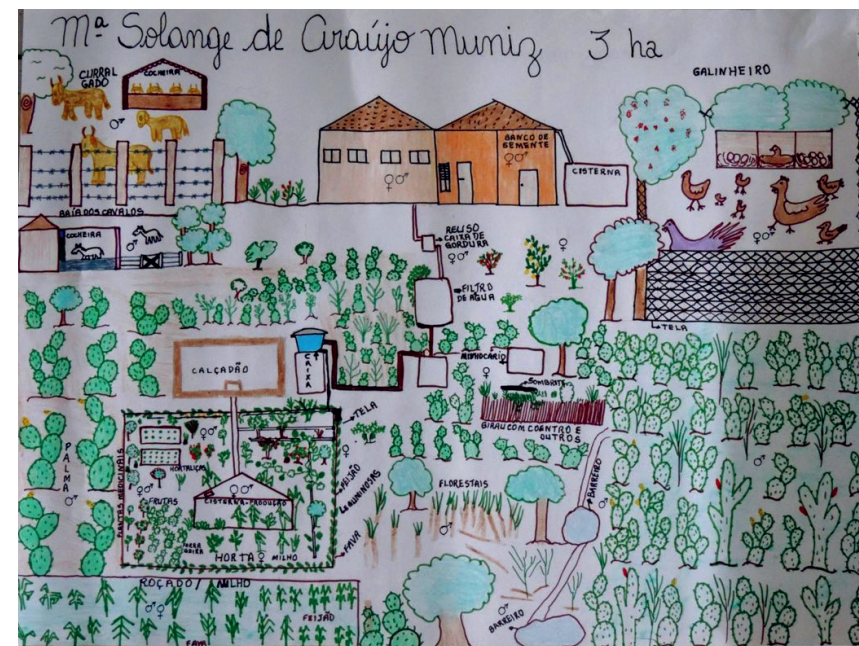 Mª Solange de Araújo Muniz 3 ha
CURRAL
GADO
COCHEIRA
GALINHEIRO
BANCO DE
SEMENTE
CISTERNA
BAÍA DOS CAVALOS
COCHEIRA
REUSO
CAIXA DE
GORDURA
FILTRO
DE AGUA
TELA
CALÇADÃO
CAIXA
MINHOCÁRIO
SOMBRITE
GIRAU COM COENTRO E
OUTROS
TELA
PALMA
PLANTAS MEDICINAIS
HORTALIÇAS
FRUTAS
CISTERNA-PRODUÇÃO
HORTA
MILHO
FEIJÃO
LEGUMINOSAS
FAVA
FLORESTAIS
BARREIRO
BARREIRO
ROÇADO/ MILHO
FEIJÃO
FAVA